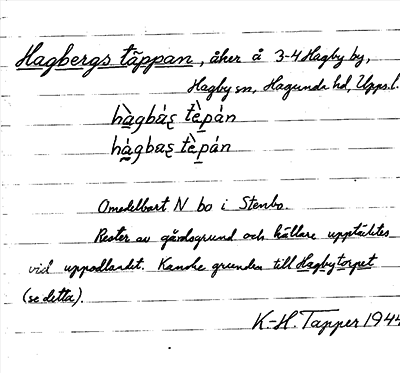 Hagbergs täppan, åker å 3-4 Hagby by,
Hagby sn, Hagunda hd, Upps.l.
hàgbáȿ tèpán
hágbaȿ tèpán
Omedelbart N bo i Stenbo.
Rester av gårdsgrund och källare upptäcktes
vid uppodlandet. Kanske grunden till Hagbytorpet
(se detta).
K.-H. Tapper 1944